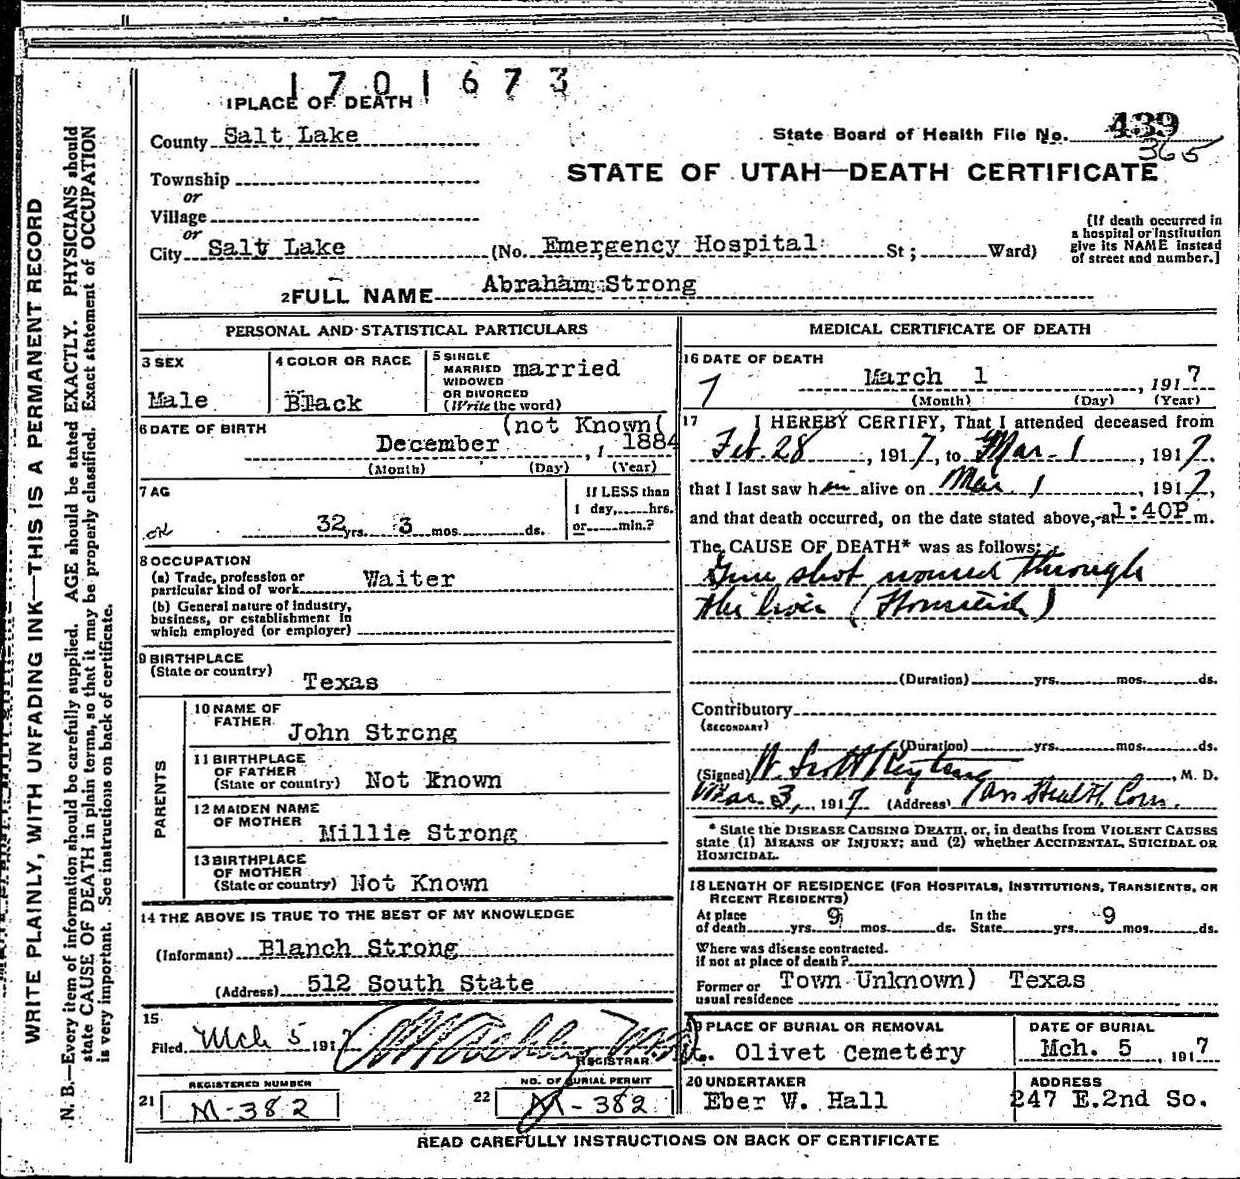 1701673
1 PLACE OF DEATH
County Salt Lake
State Board of Health File No. 439
365
Township
or
Village
or
STATE OF UTAH—DEATH CERTIFICATE
City Salt Lake (No. Emergency Hospital St; Ward)
[If death occurred in
a hospital or institution
give its NAME instead
of street and number.]
2 FULL NAME Abraham Strong
PERSONAL AND STATISTICAL PARTICULARS
3 SEX
Male
4 COLOR OR RACE
Black
5 SINGLE
MARRIED
WIDOWED
OR DIVORCED
(Write the word)
married
6 DATE OF BIRTH
(not Known(
December , 1884
(Month) (Day) (Year)
7 AG
32 yrs. 3 mos. ds.
If LESS than
1 day, hrs.
or min.?
8 OCCUPATION
(a) Trade, profession or
particular kind of work Waiter
(b) General nature of industry,
business, or establishment in
which employed (or employer)
9 BIRTHPLACE
(State or country)
Texas
PARENTS
10 NAME OF
FATHER
John Strong
11 BIRTHPLACE
OF FATHER
(State or country) Not Known
12 MAIDEN NAME
OF MOTHER
Millie Strong
13 BIRTHPLACE
OF MOTHER
(State or country) Not Known
14 THE ABOVE IS TRUE TO THE BEST OF MY KNOWLEDGE
(Informant) Blanch Strong
(Address) 512 South State
15
Filed Mch 5 191
REGISTRAR
REGISTERED NUMBER
21 M-382
NO. OF BURIAL PERMIT
22 M-382
MEDICAL CERTIFICATE OF DEATH
16 DATE OF DEATH
7
March 1 , 1917
(Month) (Day) (Year)
17 I HEREBY CERTIFY, That I attended deceased from
Feb. 28 , 1917, to Mar. 1 , 1917,
that I last saw him alive on Mar. 1 , 1917,
and that death occurred, on the date stated above, at 1:40P m.
The CAUSE OF DEATH* was as follows:
Gun shot wound through
the liver (Homicide)
(Duration) yrs. mos. ds.
Contributory
(SECONDARY)
(Duration) yrs. mos. ds.
(Signed) W. Scott , M. D.
Mar. 3, 1917 (Address) Health Com.
* State the DISEASE CAUSING DEATH, or, in deaths from VIOLENT CAUSES
state (1) MEANS OF INJURY; and (2) whether ACCIDENTAL, SUICIDAL OR
HOMICIDAL.
18 LENGTH OF RESIDENCE (FOR HOSPITALS, INSTITUTIONS, TRANSIENTS, OR
RECENT RESIDENTS)
At place
of death yrs. 9 mos. ds.
In the
State yrs. 9 mos. ds.
Where was disease contracted.
if not at place of death?
Former or
usual residence Town Unknown) Texas
19 PLACE OF BURIAL OR REMOVAL
t. Olivet Cemetery
DATE OF BURIAL
Mch. 5 , 1917
20 UNDERTAKER
Eber W. Hall
ADDRESS
247 E.2nd So.
READ CAREFULLY INSTRUCTIONS ON BACK OF CERTIFICATE
WRITE PLAINLY, WITH UNFADING INK—THIS IS A PERMANENT RECORD
N. B.—Every item of information should be carefully supplied. AGE should be stated EXACTLY. PHYSICIANS should
state CAUSE OF DEATH in plain terms, so that it may be properly classified. Exact statement of OCCUPATION
is very important. See instructions on back of certificate.